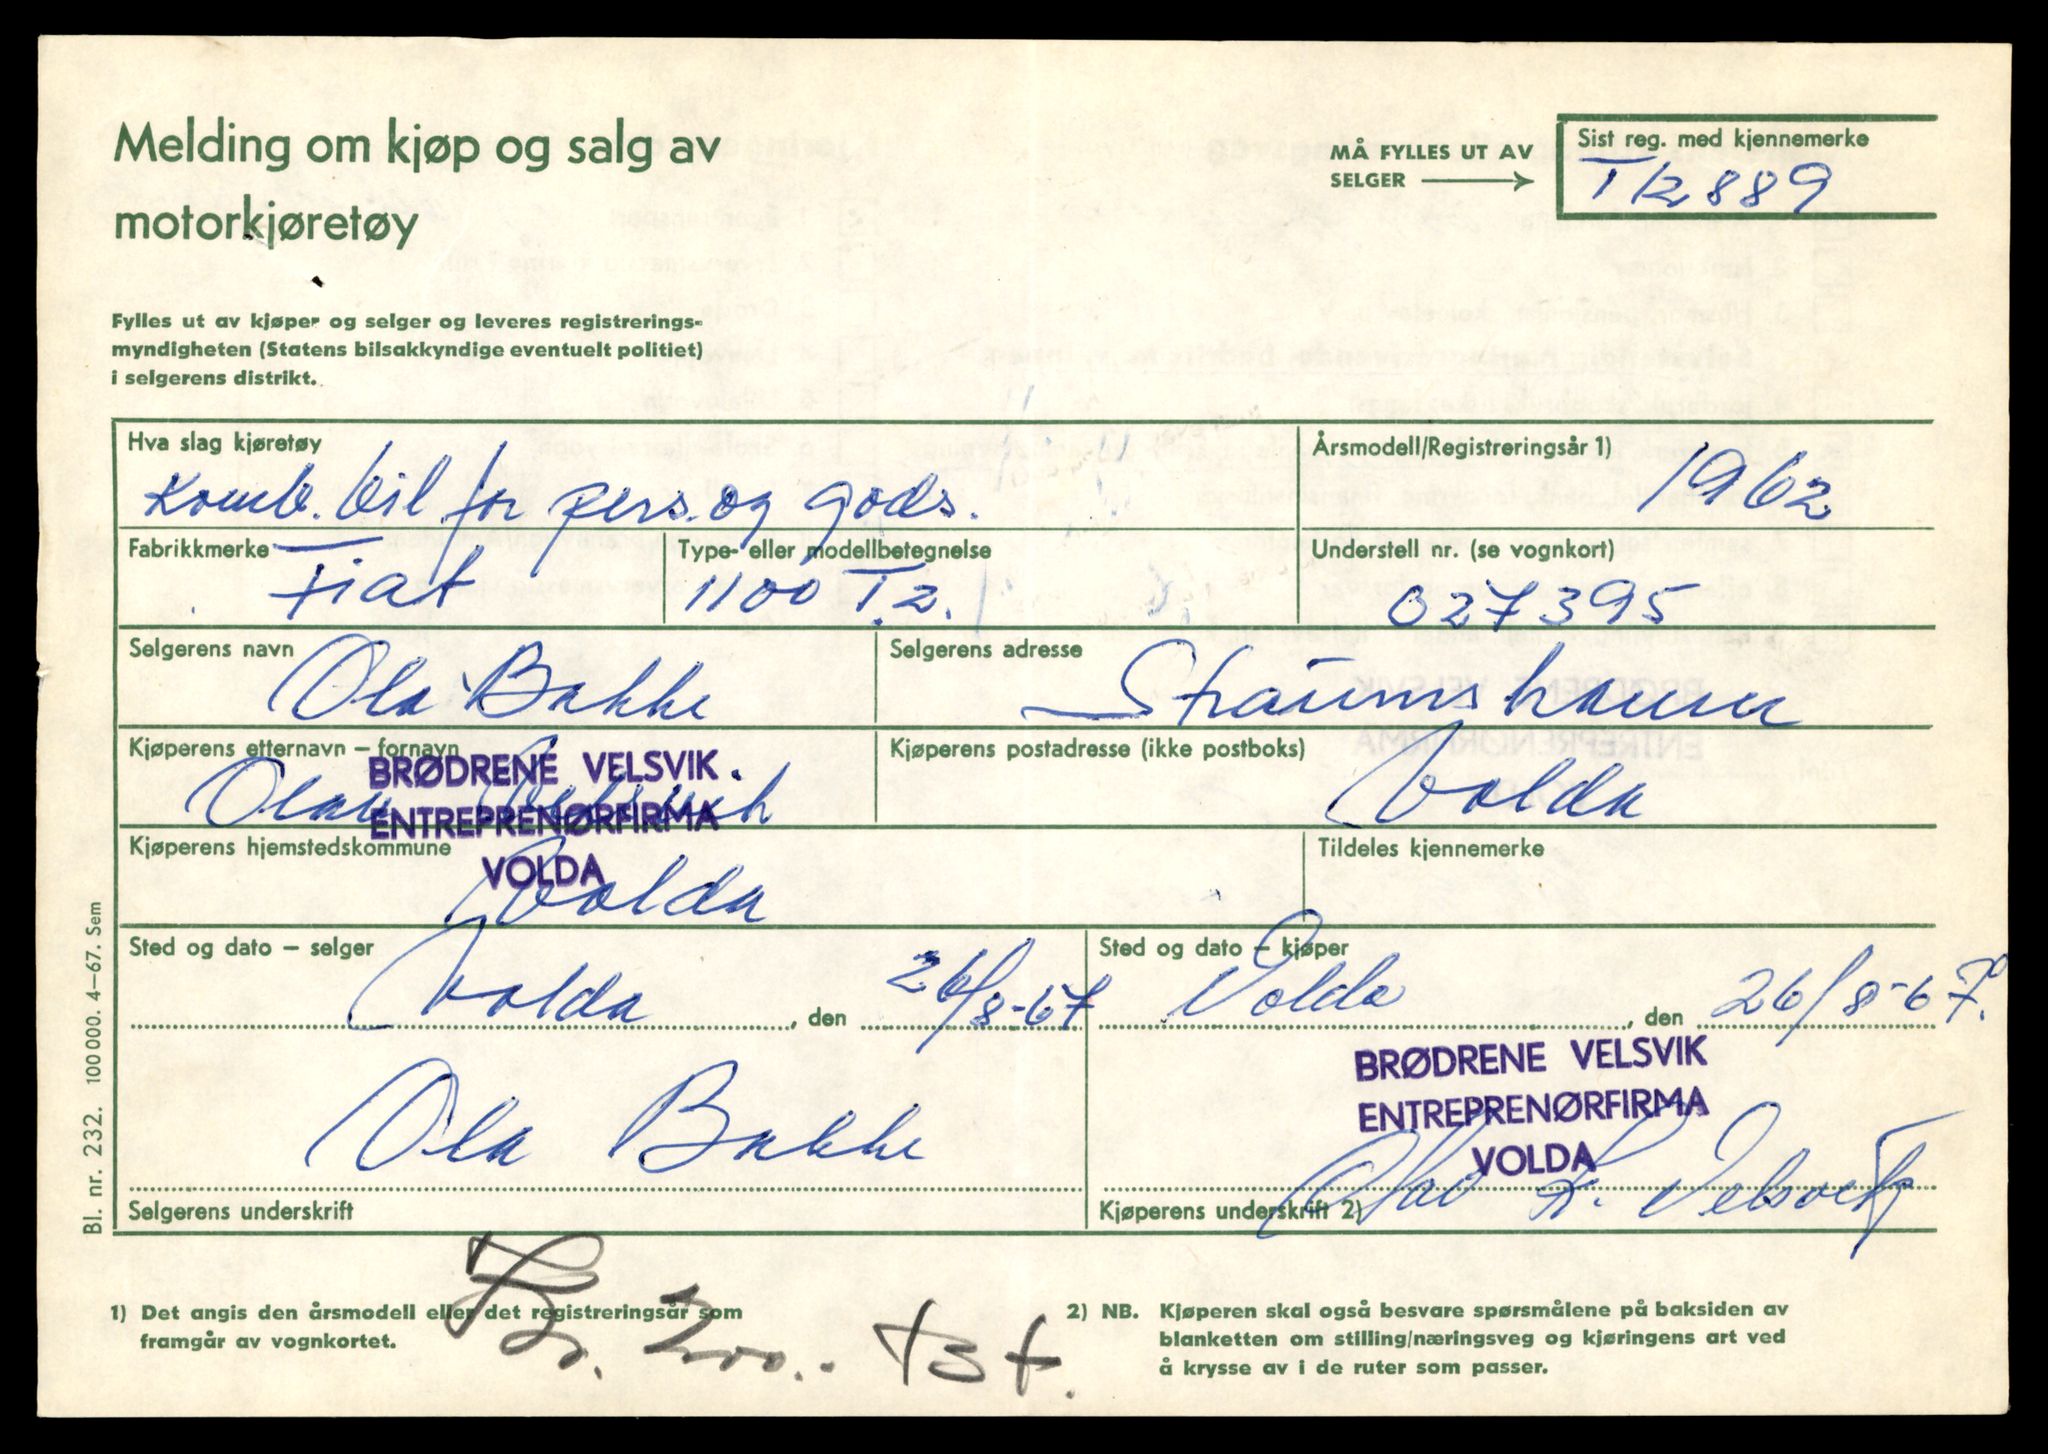 Melding om kjøp og salg av
motorkjøretøy
MÅ FYLLES UT AV
SELGER
Sist reg. med kjennemerke
T 12889
Fylles ut av kjøper og selger og leveres registrerings-
myndigheten (Statens bilsakkyndige eventuelt politiet)
i selgerens distrikt.
Hva slag kjøretøy
Komb. bil for pers. og gods.
Årsmodell/Registreringsår 1)
1962
Fabrikkmerke
Fiat
Type- eller modellbetegnelse
1100 T2.
Understell nr. (se vognkort)
027395
Selgerens navn
Ola Bakke
Selgerens adresse
Straumshamn
Kjøperens etternavn – fornavn
BRØDRENE VELSVIK
ENTREPRENØRFIRMA
VOLDA
Kjøperens postadresse (ikke postboks)
Volda
Kjøperens hjemstedskommune
Volda
Tildeles kjennemerke
Sted og dato – selger
Volda, den 26/8-67
Sted og dato – kjøper
Volda, den 26/8-67.
Ola Bakke
Selgerens underskrift
BRØDRENE VELSVIK
ENTREPRENØRFIRMA
VOLDA
Olav K. Velsvik
Kjøperens underskrift 2)
Kr.
1) Det angis den årsmodell eller det registreringsår som
framgår av vognkortet.
2) NB. Kjøperen skal også besvare spørsmålene på baksiden av
blanketten om stilling/næringsveg og kjøringens art ved
å krysse av i de ruter som passer.
Bl. nr. 232. 100 000. 4–67. Sem